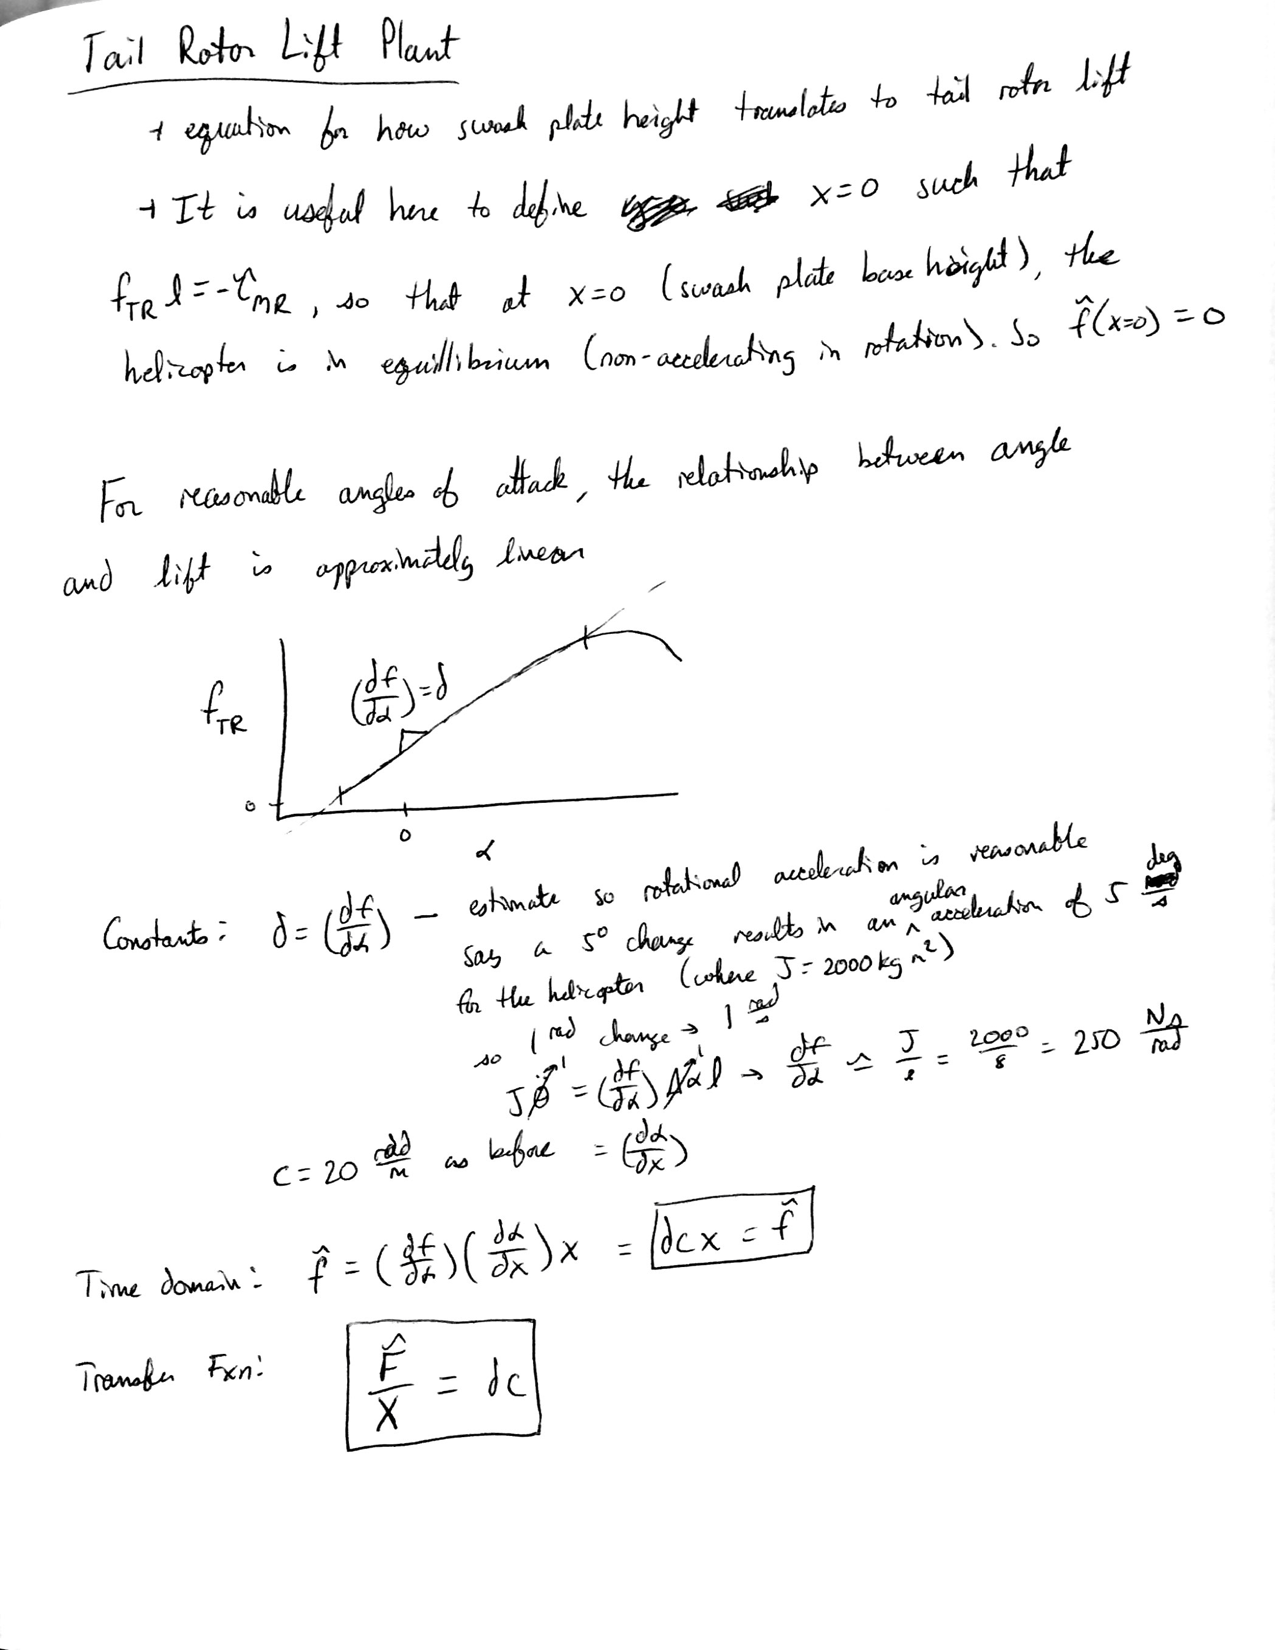 Tail Rotor Lift Plant
→ equation for how swash plate height translates to tail rotor lift
→ It is useful here to define x=0 such that
f_TR l = -τ_MR, so that at x=0 (swash plate base height), the
helicopter is in equillibrium (non-accelerating in rotation). So f̂(x=0) = 0
For reasonable angles of attack, the relationship between angle
and lift is approximately linear
(df/dα) = d
f_TR
0
0
α
Constants: d = (df/dα) - estimate so rotational acceleration is reasonable
say a 5° change results in an angular acceleration of 5 deg/s
for the helicopter (where J = 2000 kg m²)
so 1 rad change → 1 rad/s
J θ̈ = (df/dα) Δα l → df/dα ≃ J/l = 2000/8 = 250 Ns/rad
c = 20 rad/m as before = (dα/dx)
Time domain: f̂ = (df/dα)(dα/dx)x = dcx = f̂
Transfer Fxn: F̂/X = dc